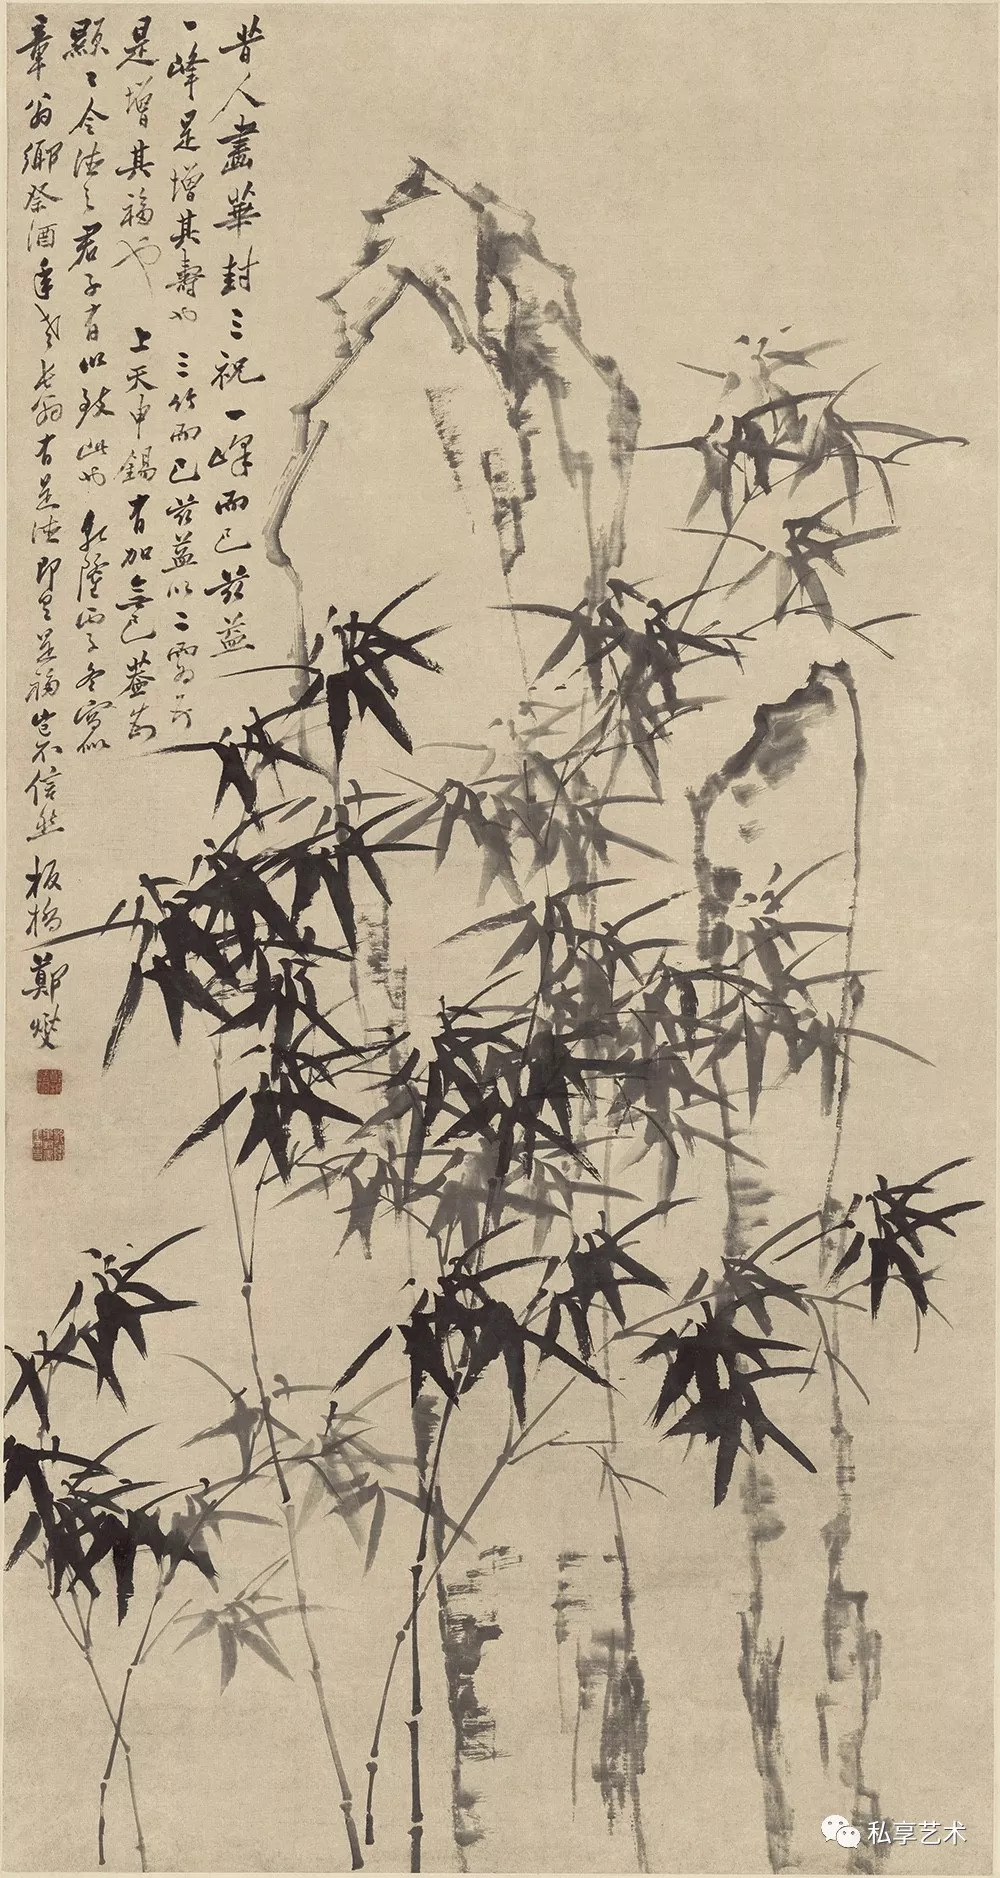 昔人畫華封三祝一峰而已茲益
一峰是增其壽也三竹而已茲益以二兩个
是增其福也 上天申錫有加無已蓋由
顯〻令德之君子有以致此也 乾隆丙子冬寫似
章翁鄉祭酒年老長翁有是德即有是福豈不信然 板橋鄭燮
私享艺术